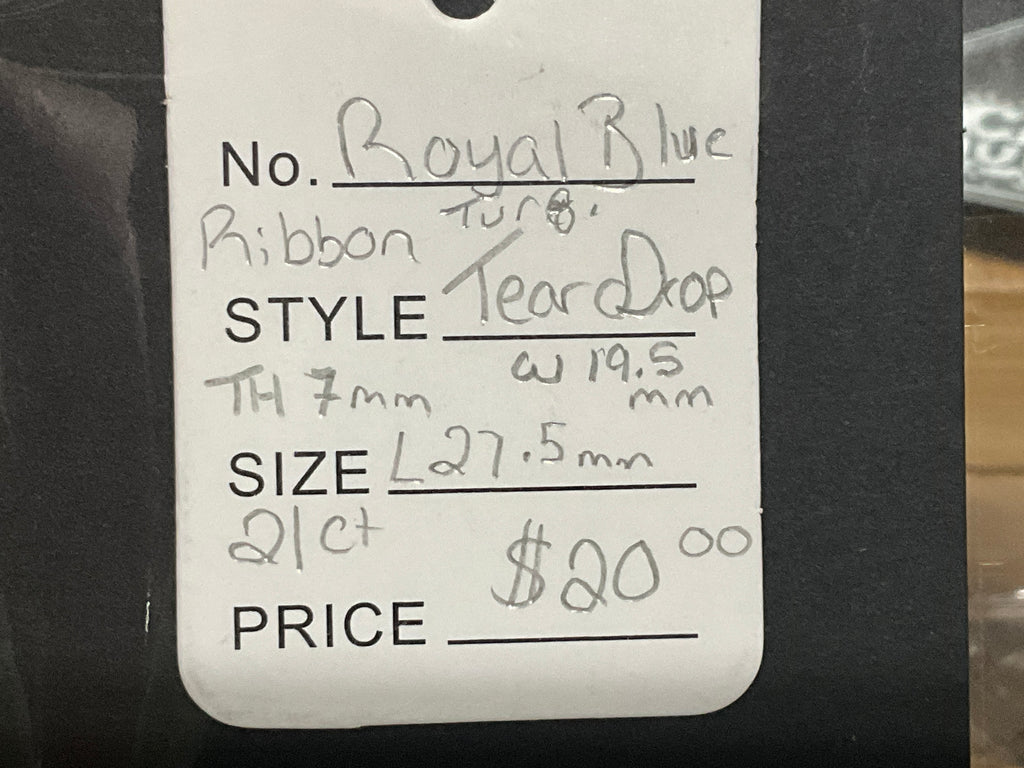 No. Royal Blue
Ribbon Turq.
STYLE Tear Drop
TH 7mm W 19.5 mm
SIZE L27.5mm
21ct
PRICE $20.00